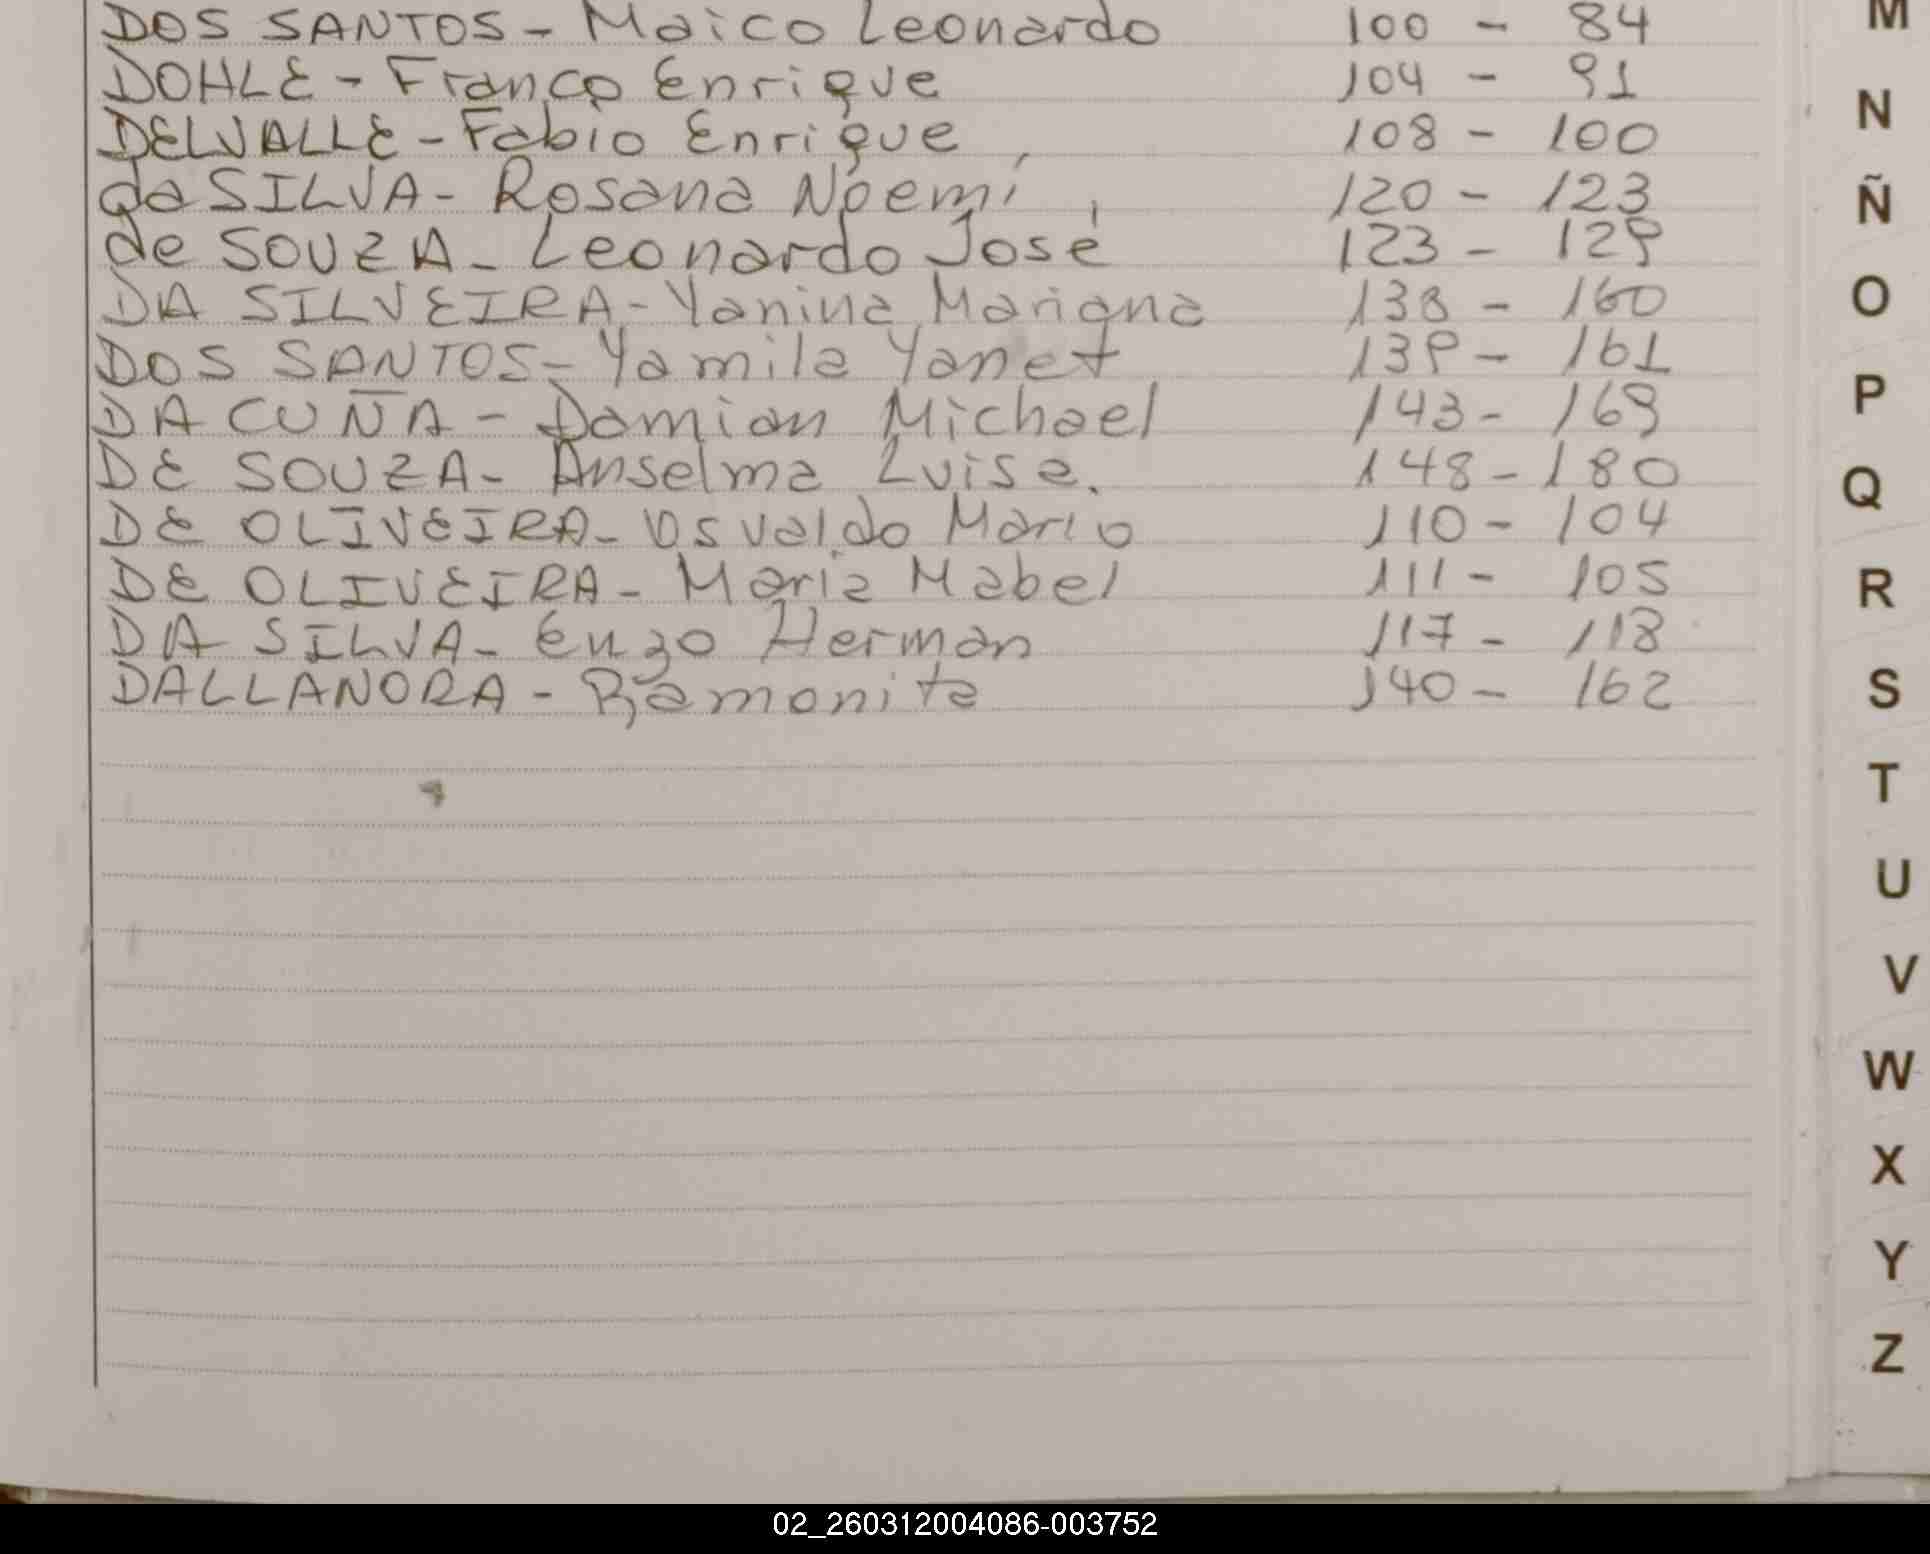 DOS SANTOS - Maico Leonardo 100 - 84
DOHLE - Franco Enrique 104 - 91
DELVALLE - Fabio Enrique 108 - 100
da SILVA - Rosana Noemí 120 - 123
de SOUZA - Leonardo José 123 - 129
DA SILVEIRA - Yanina Mariana 138 - 160
DOS SANTOS - Yamila Yanet 139 - 161
DA CUÑA - Damian Michael 143 - 169
DE SOUZA - Anselma Luisa. 148 - 180
DE OLIVEIRA - Osvaldo Mario 110 - 104
DE OLIVEIRA - Maria Mabel 111 - 105
DA SILVA - Enzo Herman 117 - 118
DALLANORA - Ramonita 140 - 162
M
N
Ñ
O
P
Q
R
S
T
U
V
W
X
Y
Z
02_260312004086-003752